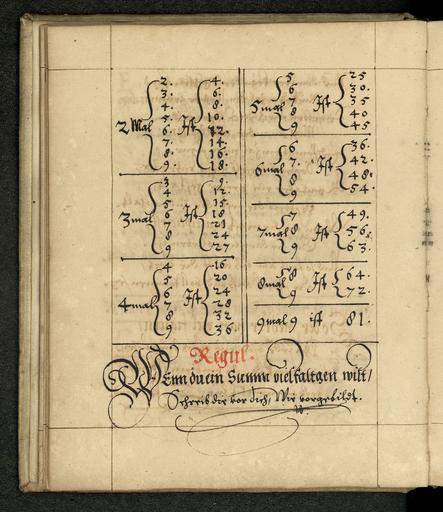 2 Mal 2. Ist 4.
3. 6.
4. 8.
5. 10.
6. 12.
7. 14.
8. 16.
9. 18.
3 mal 3 Ist 9.
4 12.
5 15.
6 18
7 21
8 24
9 27
4 mal 4 Ist 16
5 20
6 24
7 28
8 32
9 36.
5 mal 5 Ist 25
6 30.
7 35
8 40
9 45
6 mal 6 Ist 36.
7. 42.
8 48.
9 54.
7 mal 7 Ist 49.
8 56.
9 63.
8 mal 8 Ist 64.
9 72.
9 mal 9 ist 81.
Regul.
WEnn du ein Summ vielfaltgen wilt/
Schreib die vor dich, Wie vorgebildt.